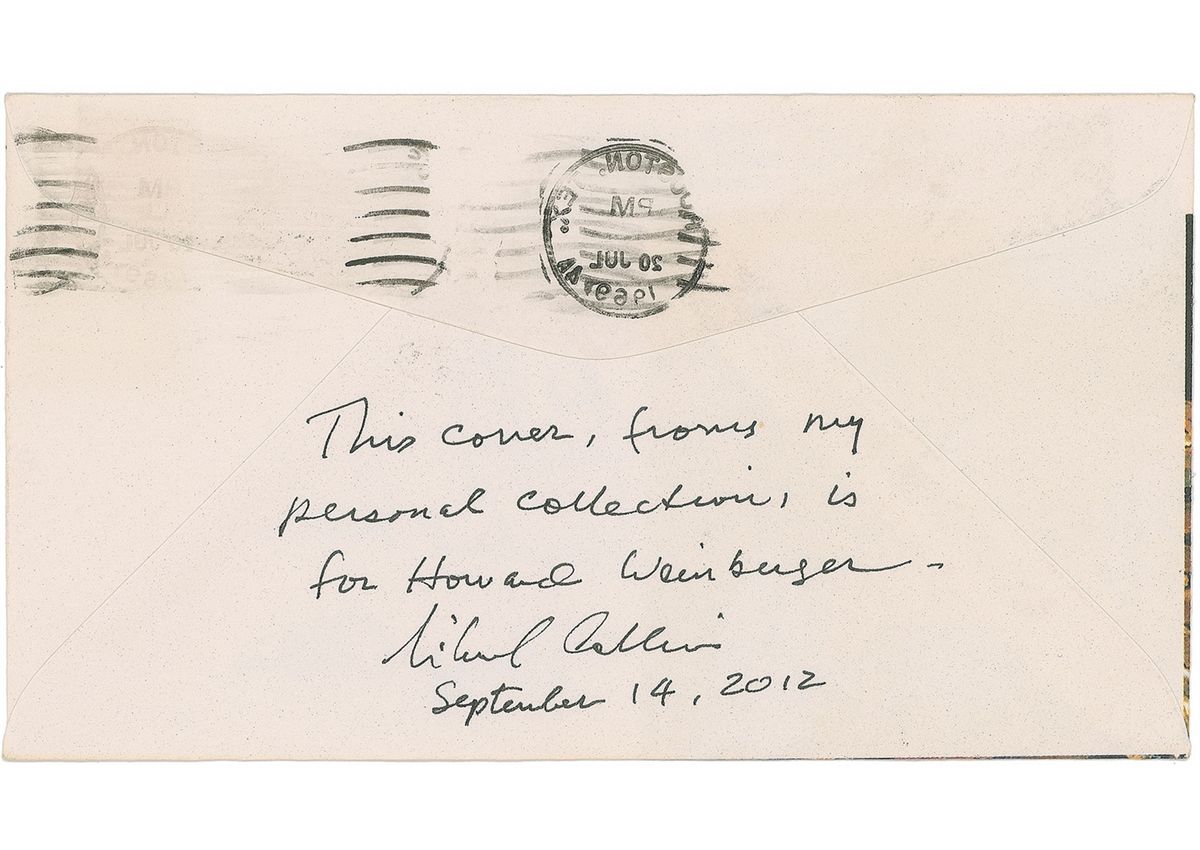 PM
20 JUL
1969
This cover, from my
personal collection, is
for Howard Weinberger –
Michael Collins
September 14, 2012